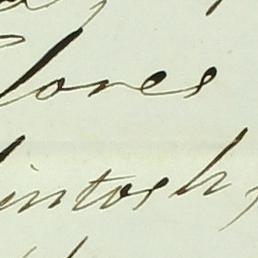 Jones
intosh,